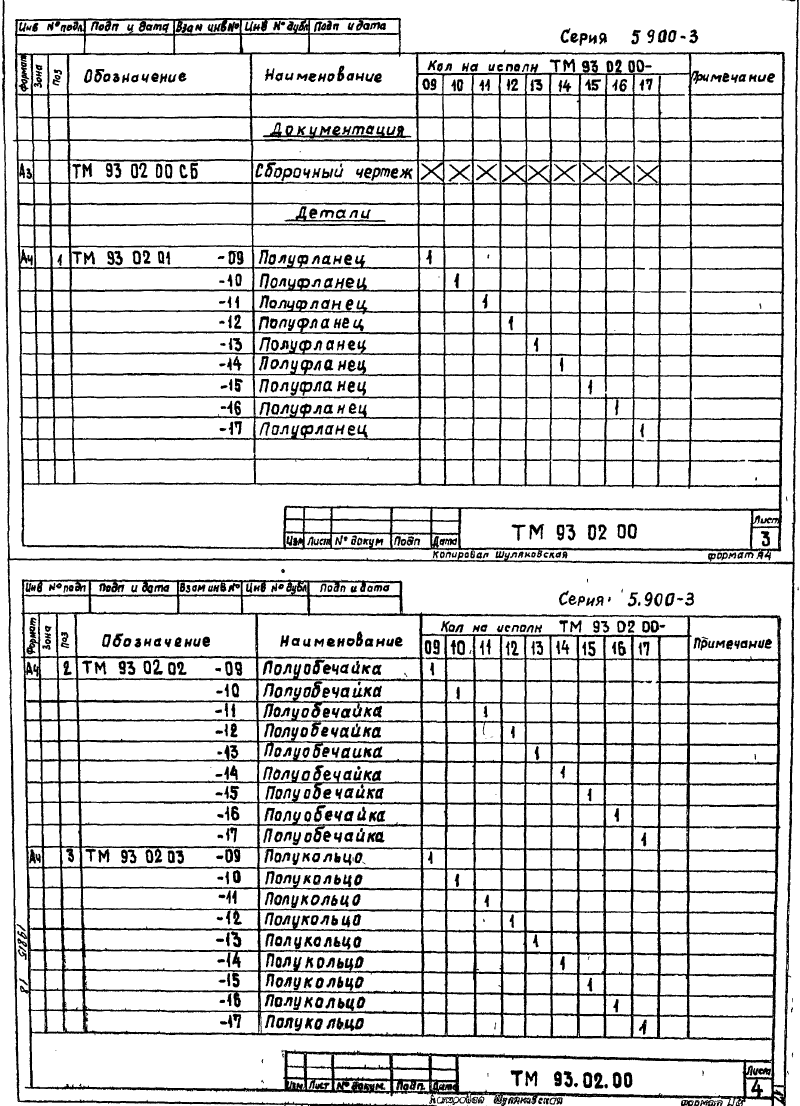 Инв № подл Подп и дата Взам инв № Инв № дубл Подп и дата
Серия 5 900-3
Формат Зона Поз Обозначение Наименование Кол на исполн ТМ 93 02 00- Примечание
09 10 11 12 13 14 15 16 17
Документация
А3 ТМ 93 02 00 СБ Сборочный чертеж X X X X X X X X X
Детали
А4 1 ТМ 93 02 01 -09 Полуфланец 1
-10 Полуфланец 1
-11 Полуфланец 1
-12 Полуфланец 1
-13 Полуфланец 1
-14 Полуфланец 1
-15 Полуфланец 1
-16 Полуфланец 1
-17 Полуфланец 1
Изм Лист № докум Подп Дата
ТМ 93 02 00
Лист
3
Копировал Шуляковская формат А4
Инв № подл Подп и дата Взам инв № Инв № дубл Подп и дата
Серия 5.900-3
Формат Зона Поз Обозначение Наименование Кол на исполн ТМ 93 02 00- Примечание
09 10 11 12 13 14 15 16 17
А4 2 ТМ 93 02 02 -09 Полуобечайка 1
-10 Полуобечайка 1
-11 Полуобечайка 1
-12 Полуобечайка 1
-13 Полуобечайка 1
-14 Полуобечайка 1
-15 Полуобечайка 1
-16 Полуобечайка 1
-17 Полуобечайка 1
А4 3 ТМ 93 02 03 -09 Полукольцо 1
-10 Полукольцо 1
-11 Полукольцо 1
-12 Полукольцо 1
-13 Полукольцо 1
-14 Полукольцо 1
-15 Полукольцо 1
-16 Полукольцо 1
-17 Полукольцо 1
Изм Лист № докум. Подп. Дата
ТМ 93.02.00
Лист
4
Копировал Шуляковская формат